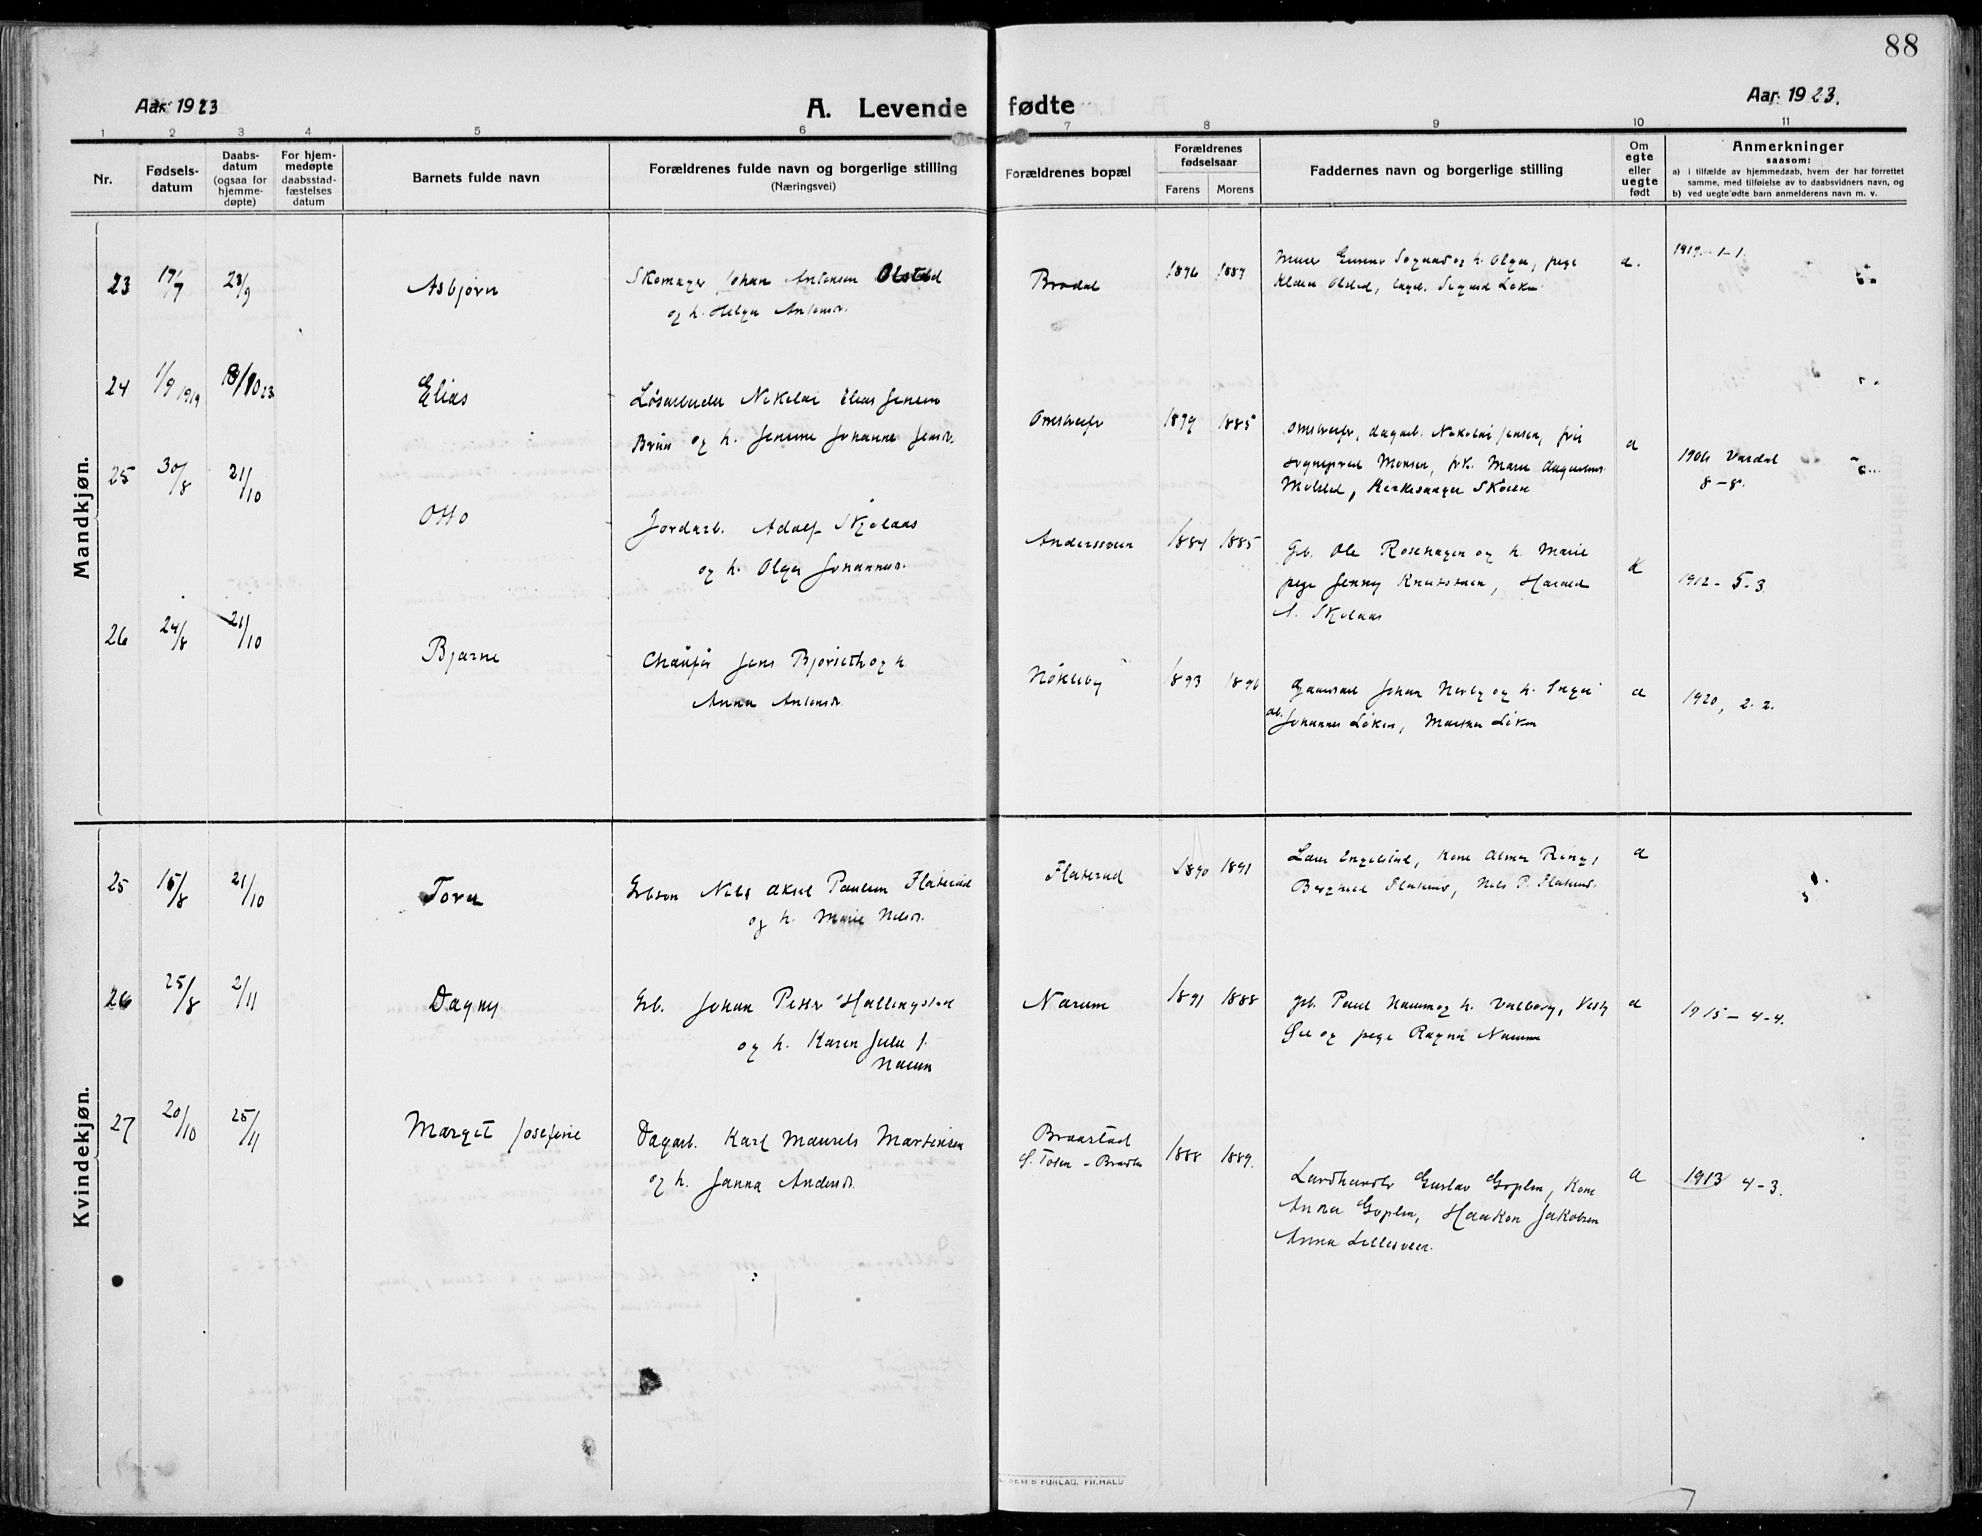 88
Aar 1923
A. Levende fødte
Aar 1923.
1 2 3 4 5 6 7 8 9 10 11
Nr.
Fødsels-
datum
Daabs-
datum
(ogsaa for
hjemme-
døpte)
For hjem-
medøpte
daabsstad-
fæstelses
datum
Barnets fulde navn
Forældrenes fulde navn og borgerlige stilling
(Næringsvei)
Forældrenes bopæl
Forældrenes
fødselsaar
Farens Morens
Faddernes navn og borgerlige stilling
Om
egte
eller
uegte
født
Anmerkninger
saasom:
a) i tilfælde av hjemmedaab, hvem der har forrettet
samme, med tilføielse av to daabsvidners navn, og
b) ved uegte fødte barn anmelderens navn m. v.
Mandkjøn.
23 17/7 23/9 Asbjørn
Skomager Johan Antonsen Olstad
og h. Helga Antonsdr.
Bradal 1896 1889
og h. Olga, pige
Klara Olstad, Sigurd Løken
a.
1917-1-1.
24 1/9 1919 /10 23 Elias
Løsarbeider Nikolai Elias Jensen
Bruu og h. Jenine Johanne Jensdr.
1879 1885
dagarb. Nikolai Jensen, frú
sogneprest Monsen, frk. Marie
Molsted, Kirkesanger Skøien
a
1906 Vardal
8-8.
25 30/8 21/10 Otto
Jordarb. Adolf Skjelaas
og h. Olga Johannesdr.
Anderssveen 1884 1885
Gb. Ole Rosehagen og h. Marie
pige Jenny Knutsveen, Harald
A. Skjelaas
1912-5-3.
26 24/8 21/10 Bjarne
Chaufør Jens Bjørseth og h.
Anna Antonsdr.
Nøkleby 1893 1896
Johan Nerby og h. Inga
ab. Johannes Løken, Martha Løken
a
1920, 2.2.
Kvindekjøn.
25 15/8 21/10 Tora
Gbsøn Nils Aksel Paulsen Flaterud
og h. Marie Nilsdr.
Flaterud 1890 1891
Lars Engelstad, Kone Alma Ring,
Berghild Flaterud, Nils P. Flaterud.
a
26 25/8 2/11 Dagny
Gb. Johan Peter Hallingstad
og h. Karen Julie f.
Narum
Narum 1891 1888
Gb. Paul Narum og h. Valborg,
og pige Ragna Narum
a
1915-4-4.
27 20/10 25/11 Marget Josefine
Dagarb. Karl Maurits Martinsen
og h. Janna Andersdr.
Braastad
1888 1889.
Landhandler Gustav Goplen, Kone
Anna Goplen, Haakon Jakobsen
Anna Lillesveen.
a
1913 4-3.
FORLAG. FR. HALD